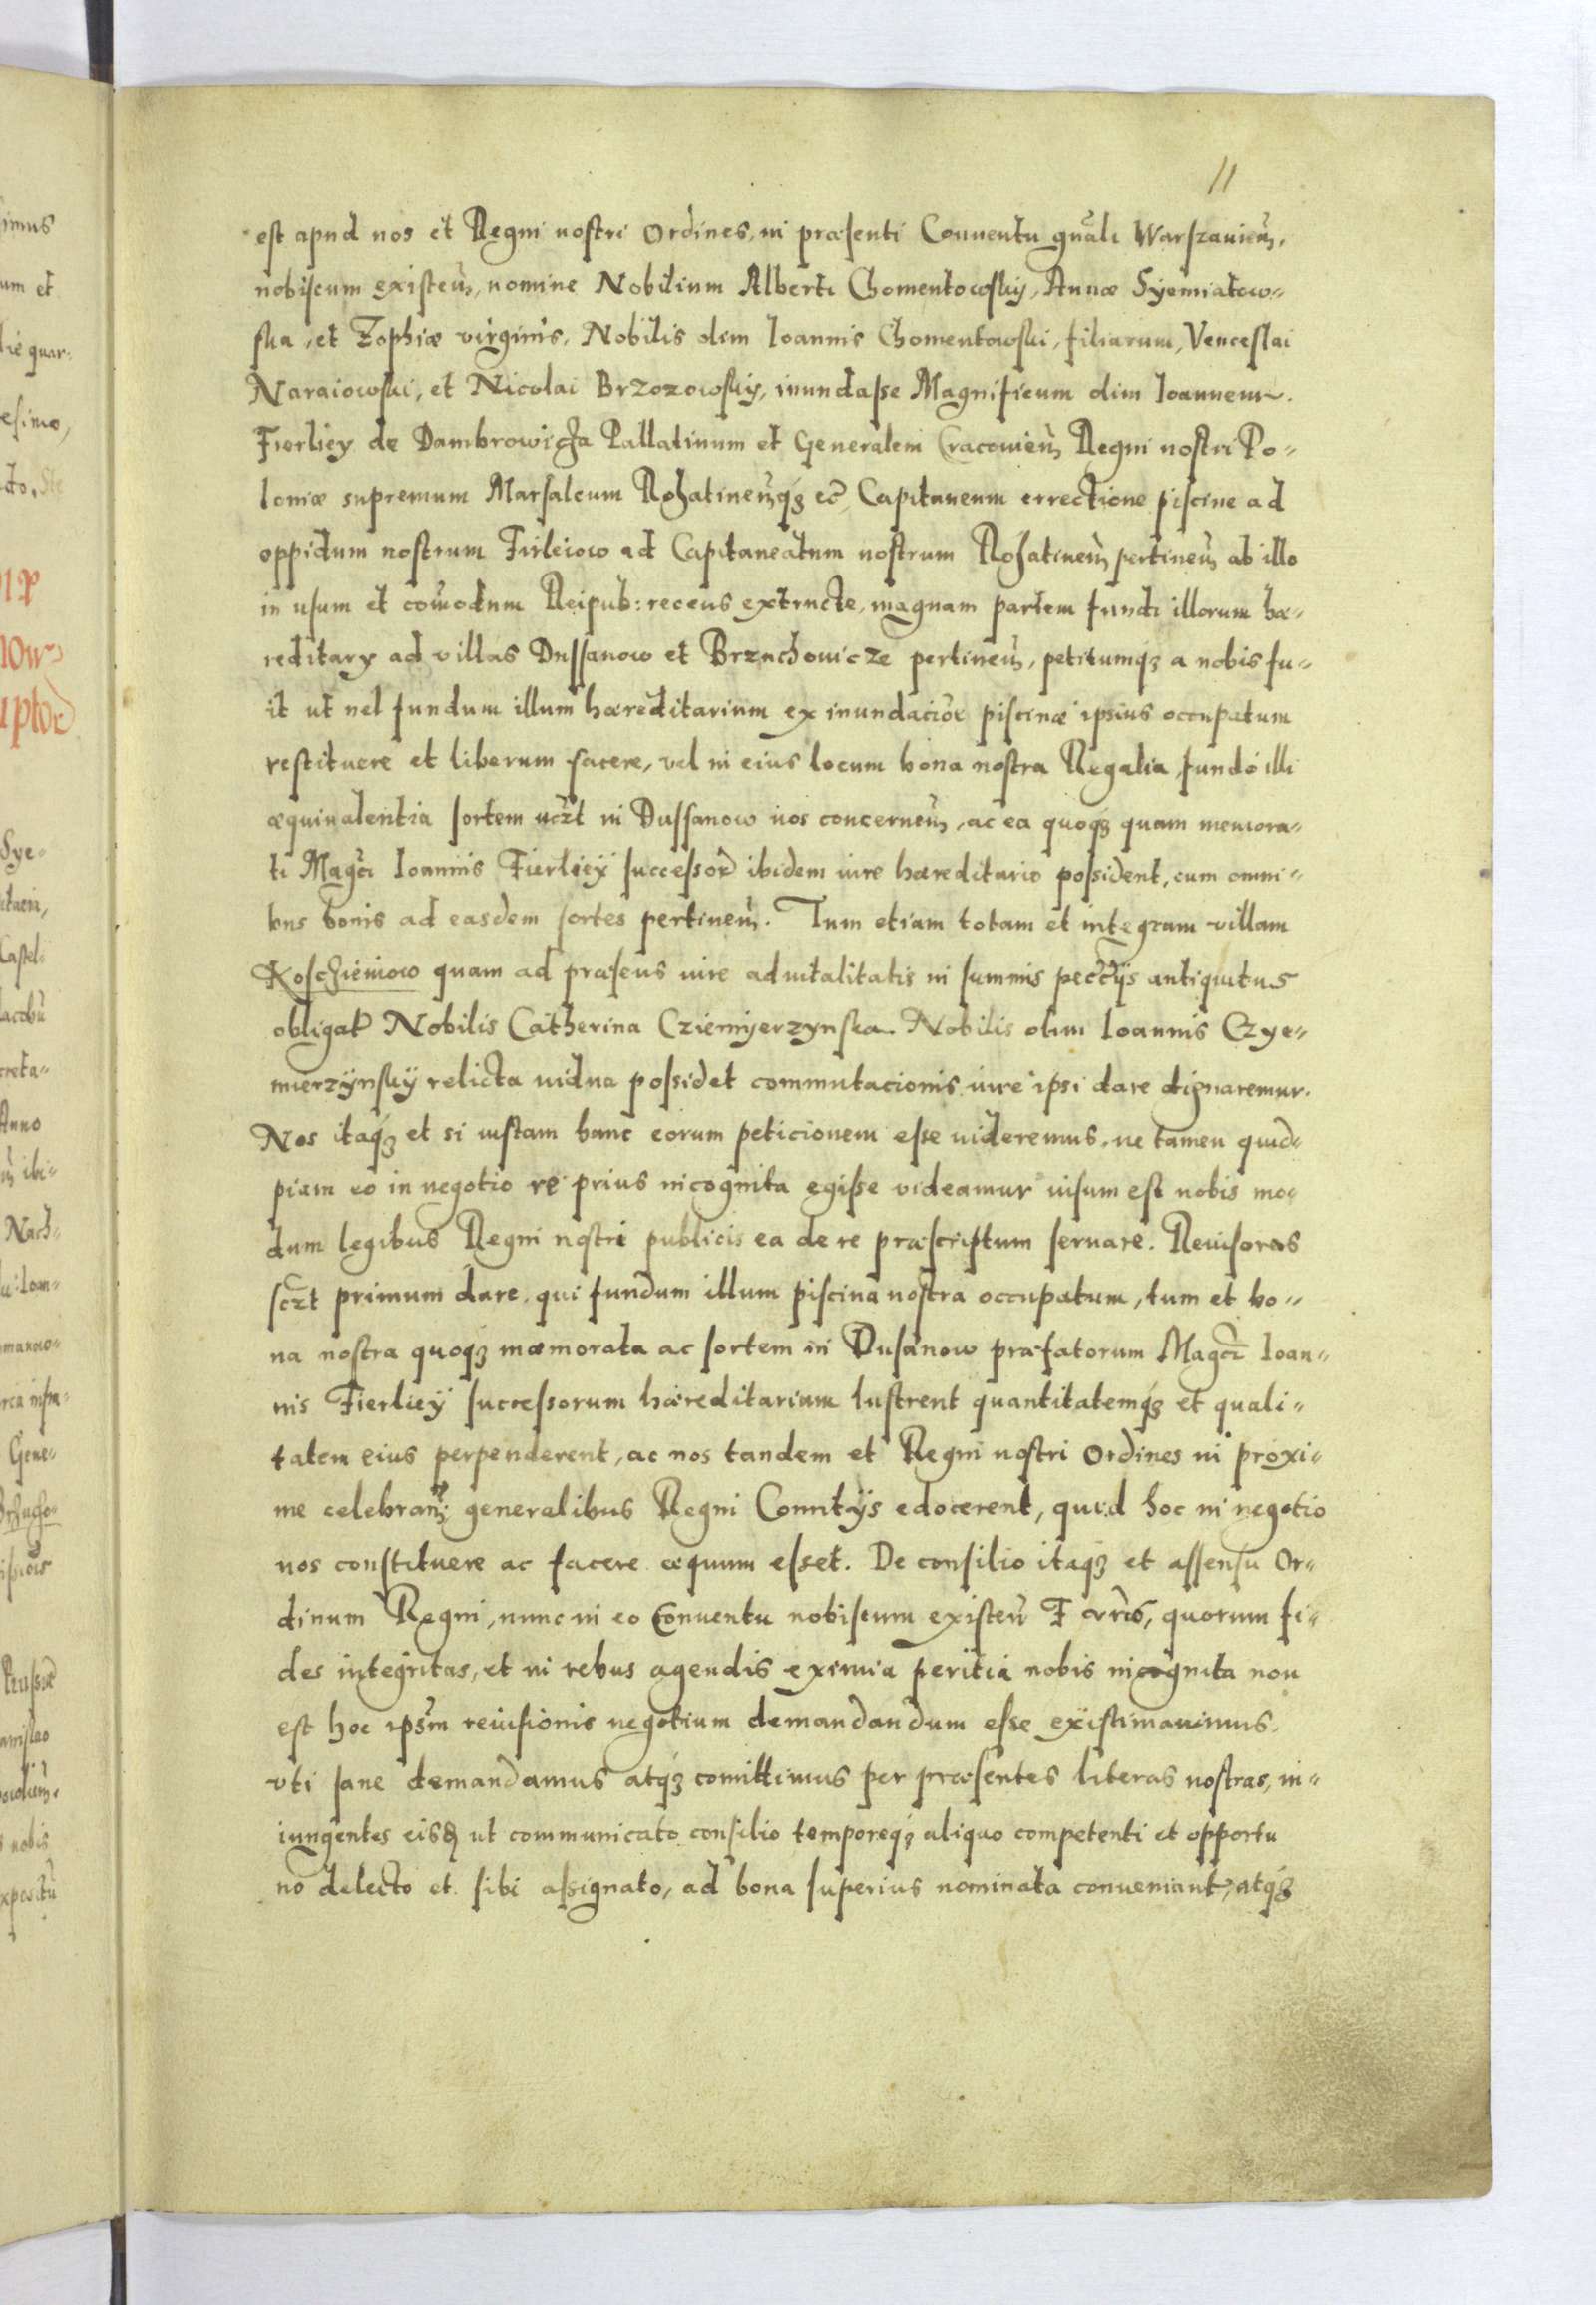 11
est apud nos et Regni nostri Ordines, in præsenti Conuentu gnãli Warszauieñ,
nobiscum existeñ, nomine Nobilium Alberti Chomentowskij, Annæ Syemiatow=
ska, et Zophiæ virginis, Nobilis olim Ioannis Chomentowski, filiarum, Venceslai
Naraiowski, et Nicolai Brzozowskij, inundasse Magnificum olim Ioannem
Fierliey de Dambrowicza Pallatinum et Generalem Cracouieñ Regni nostri Po=
loniæ supremum Marsalcum Rohatineñqꝫ ec̃ Capitaneum errectione piscine ad
oppidum nostrum Firleiow ad Capitaneatum nostrum Rohatineñ pertineñ ab illo
in usum et com̃odum Reipub: recens extructe, magnam partem fundi illorum hæ=
reditary ad villas Dussanow et Brzuchowicze pertineñ, petitumqꝫ a nobis fu=
it ut uel fundum illum hæreditarium ex inundaciõe piscinæ ipsius occupatum
restituere et liberum facere, vel in eius locum bona nostra Regalia, fundo illi
æquiualentia sortem uczt in Dussanow nos concerneñ, ac ea quoqꝫ quam memora=
ti Magci Ioannis Fierliey successoꝝ ibidem iure hæreditario possident, cum omni=
bus bonis ad easdem sortes pertineñ. Tum etiam totam et integram villam
Koschieniow quam ad præsens iure aduitalitatis in summis pecc̃ijs antiquitus
obligaꝝ Nobilis Catherina Cziemyerzynska Nobilis olim Ioannis Czye=
mierzÿnskÿ relicta uidua possidet commutacionis iure ipsi dare dignaremur.
Nos itaqꝫ et si iustam hanc eorum peticionem esse uideremus, ne tamen quid=
piam eo in negotio re prius incognita egisse videamur uisum est nobis mo=
dum legibus Regni nostri publicis ea de re præscriptum seruare. Reuisores
sczt primum dare, qui fundum illum piscina nostra occupatum, tum et bo=
na nostra quoqꝫ mæmorata ac sortem in Dusanow præfatorum Magci Ioan=
nis Fierliey successorum hæreditarium lustrent quantitatemqꝫ et quali=
tatem eius perpenderent, ac nos tandem et Regni nostri Ordines in proxi=
me celebrañ generalibus Regni Comitijs edocerent, quid hoc in negotio
nos constituere ac facere æquum esset. De consilio itaqꝫ et assensu Or=
dinum Regni, nunc in eo Conuentu nobiscum existeñ F vr̃is, quorum fi=
des integritas, et in rebus agendis eximia peritia nobis incognita non
est hoc ips̃m reuisionis negotium demandandum esse existimauimus,
vti sane demandamus atqꝫ comittimus per præsentes literas nostras, in=
iungentes eisꝺ ut communicato consilio temporeqꝫ aliquo competenti et opportu
no delecto et sibi assignato, ad bona superius nominata conueniant, atqꝫ